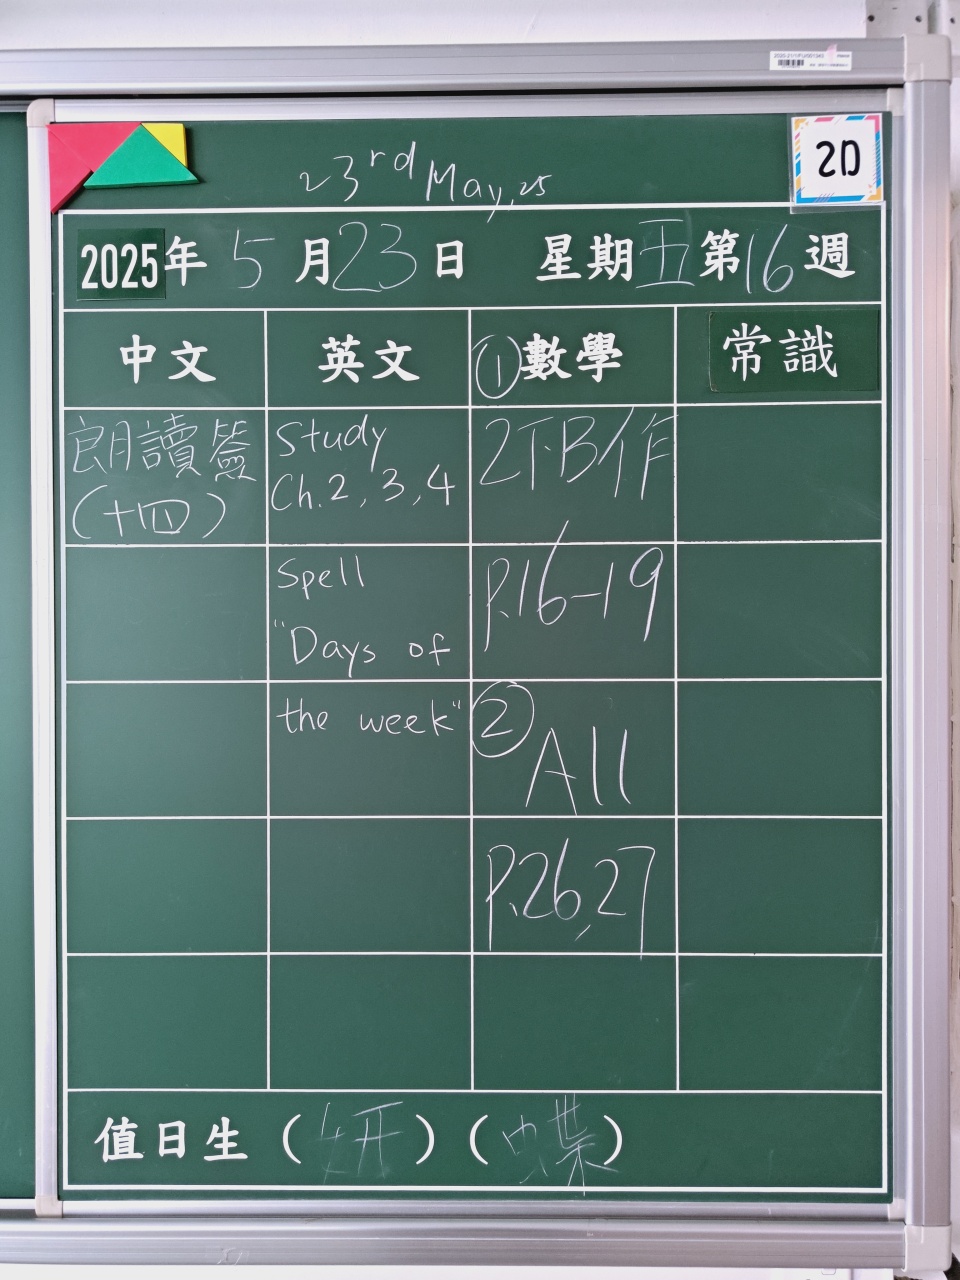 23rd May, 25
2D
2025年5月23日 星期五第16週
中文 英文 ①數學 常識
朗讀簽
(十四)
Study
Ch.2, 3, 4
Spell
"Days of
the week"
2下B作
P.16-19
② A11
P.26,27
值日生(妍)(蝶)